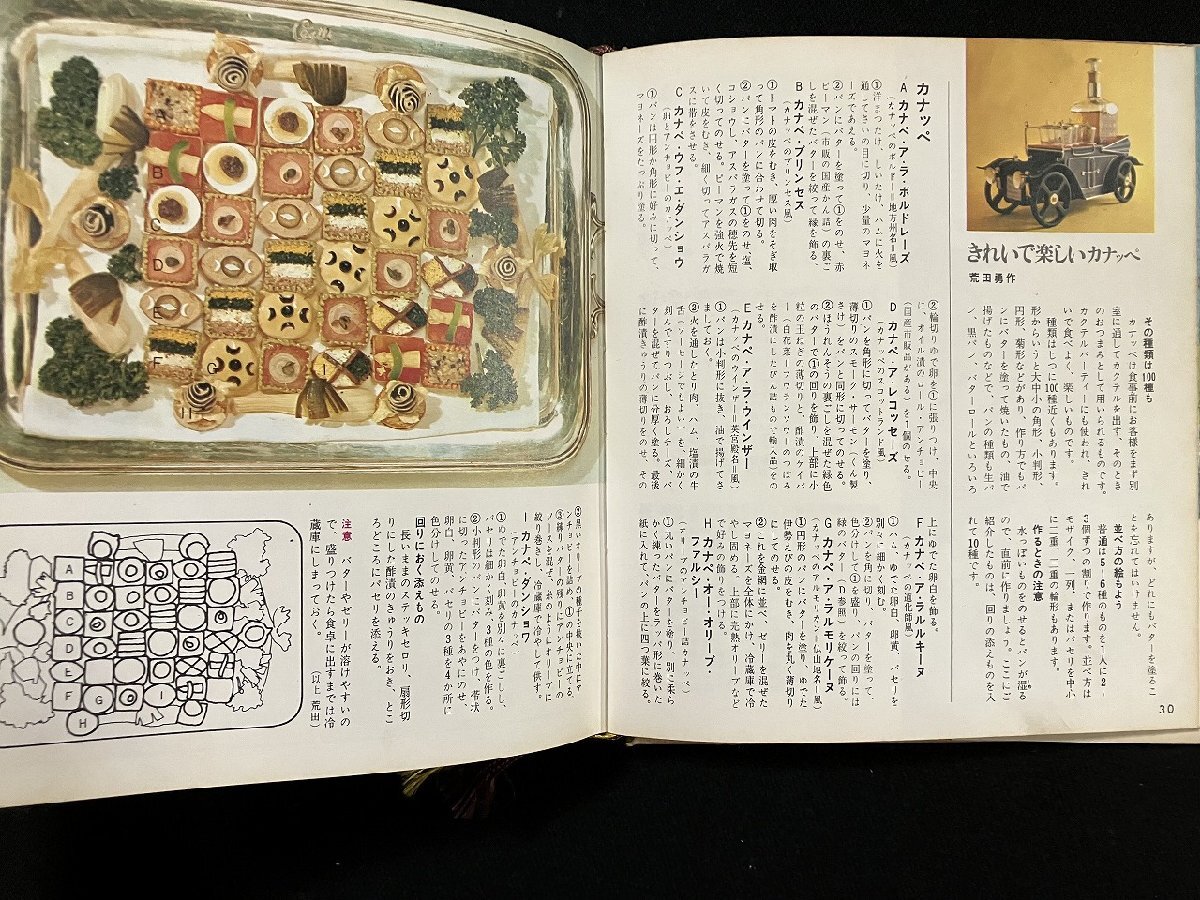 きれいで楽しいカナッペ
荒田勇作
その種類は100種も
カナッペは食事前にお客様をまず別
室に通してカクテルを出す、そのとき
のおつまみとして用いられるものです。
カクテルパーティーにも使われ、きれ
いで食べよく、楽しいものです。
種類はじつに100種近くもあります。
形からいうと大中小の角形、小判形、
円形、菊形などがあり、作り方でもパ
ンにバターを塗って焼いたもの、油で
揚げたものなどで、パンの種類も生パ
ン、黒パン、バターロールといろいろ
ありますが、どれにもバターを塗るこ
とを忘れてはいけません。
並べ方の絵もよう
普通は5〜6種のものを1人に2〜
3個ずつの割りで作ります。並べ方は
モザイク、一列、またはパセリを中心
に二重、三重の輪形もあります。
作るときの注意
水っぽいものをのせるとパンが湿る
ので、直前に作りましょう。ここにご
紹介したものは、回りの添えものを入
れて10種です。
30
カナッペ
A カナペ・ア・ラ・ボルドレーズ
(カナッペのボルドー地方州名=風)
②パンにバターを塗って①をのせ、赤
ピーマン(市販の国産かん詰)の裏ご
しを混ぜたバターを絞って縁を飾る。
B カナペ・プリンセス
(カナッペのプリンセス風)
って角形のパンに合わせて切る。
②パンにバターを塗って①をのせ、塩、
コショウし、アスパラガスの穂先を短
く切ってのせる。ピーマンを強火で焼
いて皮をむき、細く切ってアスパラガ
スに帯をさせる。
C カナペ・ウフ・エ・ダンショワ
(卵とアンチョビーのカナッペ)
①パンは円形か角形に好みに切って、
マヨネーズをたっぷり塗る。
②輪切りゆで卵を①に張りつけ、中央
に、オイル漬のロール・アンチョビー
(国産市販品がある)を1個のせる。
D カナペ・ア・レコッセーズ
(カナッペのスコットランド風)
①パンを角形に切ってバターを塗り、
薄切りのスモークサーモン(くん製
さけ)をパンと同形に切ってのせる。
②ほうれんそうの裏ごしを混ぜた緑色
のバターで①の回りを飾り、上部に小
粒の玉ねぎの薄切りと、酢漬のケイパ
せる。
E カナペ・ア・ラ・ウインザー
(カナッペのウインザー=英宮殿名=風)
①パンは小判形に抜き、油で揚げてさ
ましておく。
②火を通したとり肉、ハム、塩漬の牛
刻んですりつぶし、おろしチーズ、バ
ターを混ぜてパンに分厚く塗る。最後
に酢漬きゅうりの薄切りをのせ、その
上にゆでた卵白を飾る。
F カナペ・ア・ラルルキーヌ
(カナッペの道化師風)
①ハム、ゆでた卵白、卵黄、パセリを
別々に細かく刻む。
②パンを角に切り、バターを塗って、
色分けして①を盛り、パンの回りには
緑のバター(D参照)を絞って飾る。
G カナペ・ア・ラルモリケーヌ
①円形のパンにバターを塗り、ゆでた
伊勢えびの皮をむき、肉を丸く薄切り
にしてのせる。
②これを金網に並べ、ゼリーを混ぜた
マヨネーズを全体にかけ、冷蔵庫で冷
やし固める。上部に完熟オリーブなど
で好みの飾りをつける。
H カナペ・オー・オリーブ・
ファルシー
かく練ったバターをラッパ形に巻いた
紙に入れて、パンの上に四つ葉に絞る。
ンチョビーを詰め、①の中央に立てる。
絞り巻きし、冷蔵庫で冷やして供す。
I カナペ・ダンショワ
(アンチョビーのカナッペ)
①ゆでた卵白、卵黄を別々に裏ごしし、
パセリは細かく刻み、3種の色を作る。
②小判形のパンにバターをつけ、帯状
に切ったアンチョビーをあやにのせ、
卵白、卵黄、パセリの3種を4か所に
色分けしてのせる。
回りにおく添えもの
長いままのステッキセロリ、扇形切
りにした酢漬のきゅうりをおき、とこ
ろどころにパセリを添える。
(以上 荒田)
注意 バターやゼリーが溶けやすいの
で、盛りつけたら食卓に出すまでは冷
蔵庫にしまっておく。
A
B
C
D
E
F
G
H
I
A
B
C
D
E
F
G
H
I